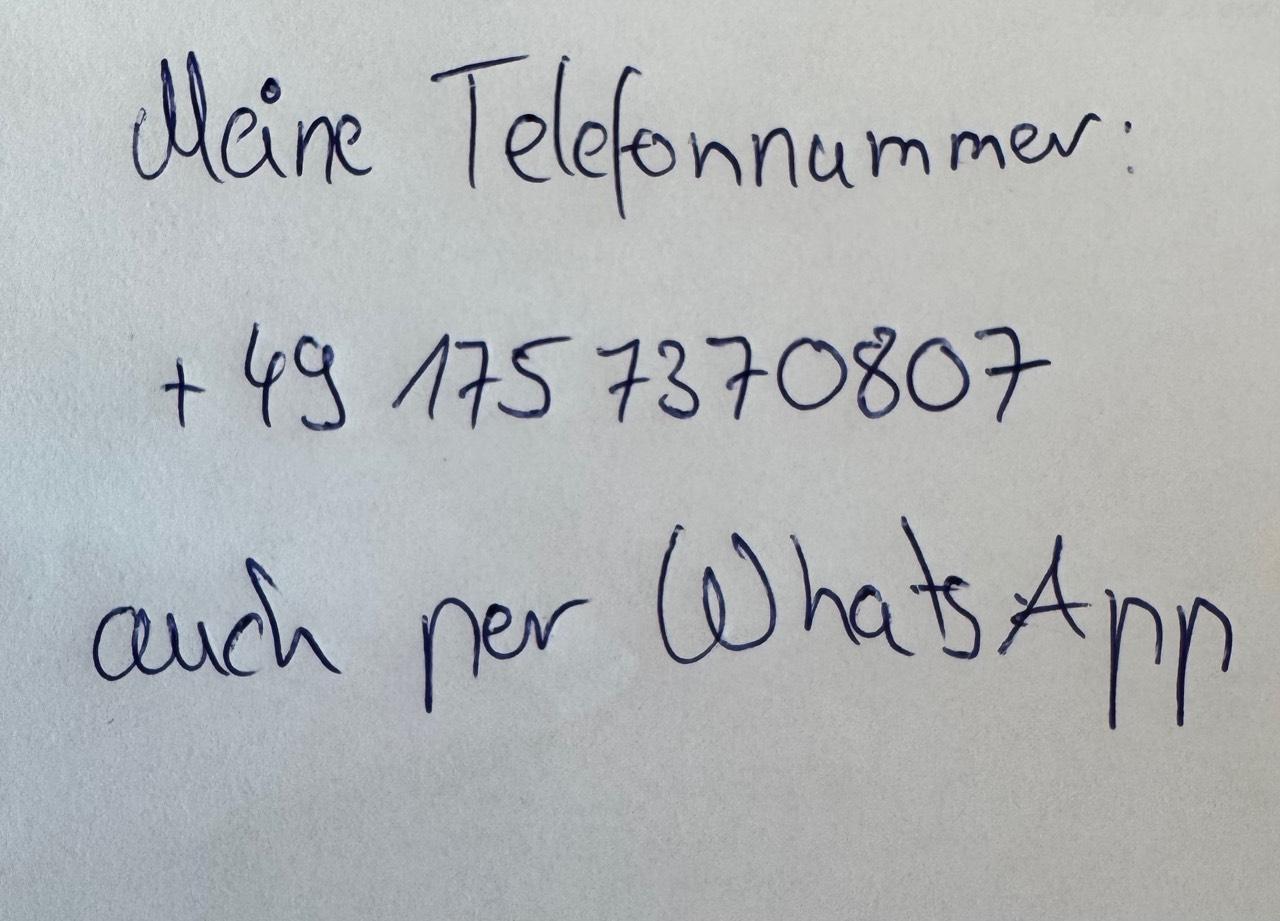 Meine Telefonnummer:
+49 175 7370807
auch per WhatsApp